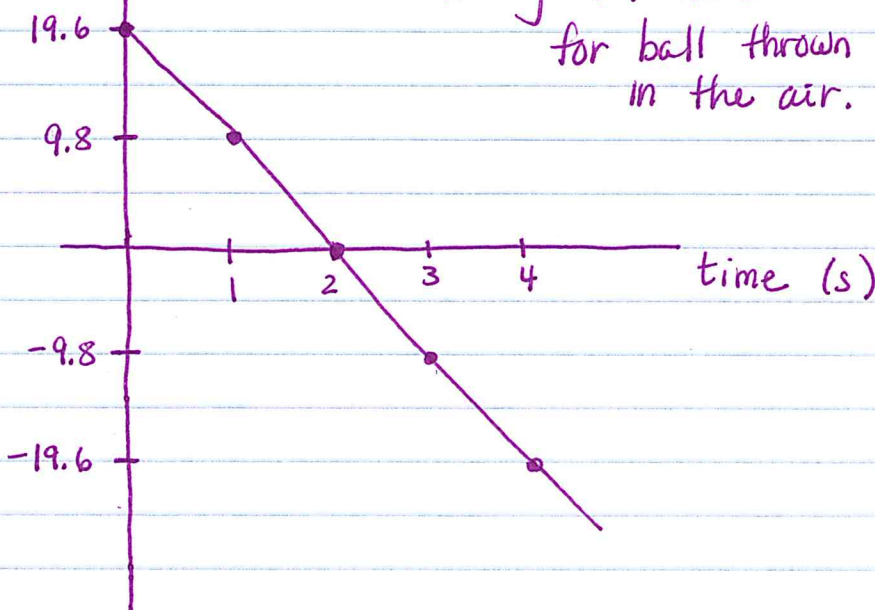 19.6
for ball thrown
in the air.
9.8
1
2
3
4
time (s)
-9.8
-19.6